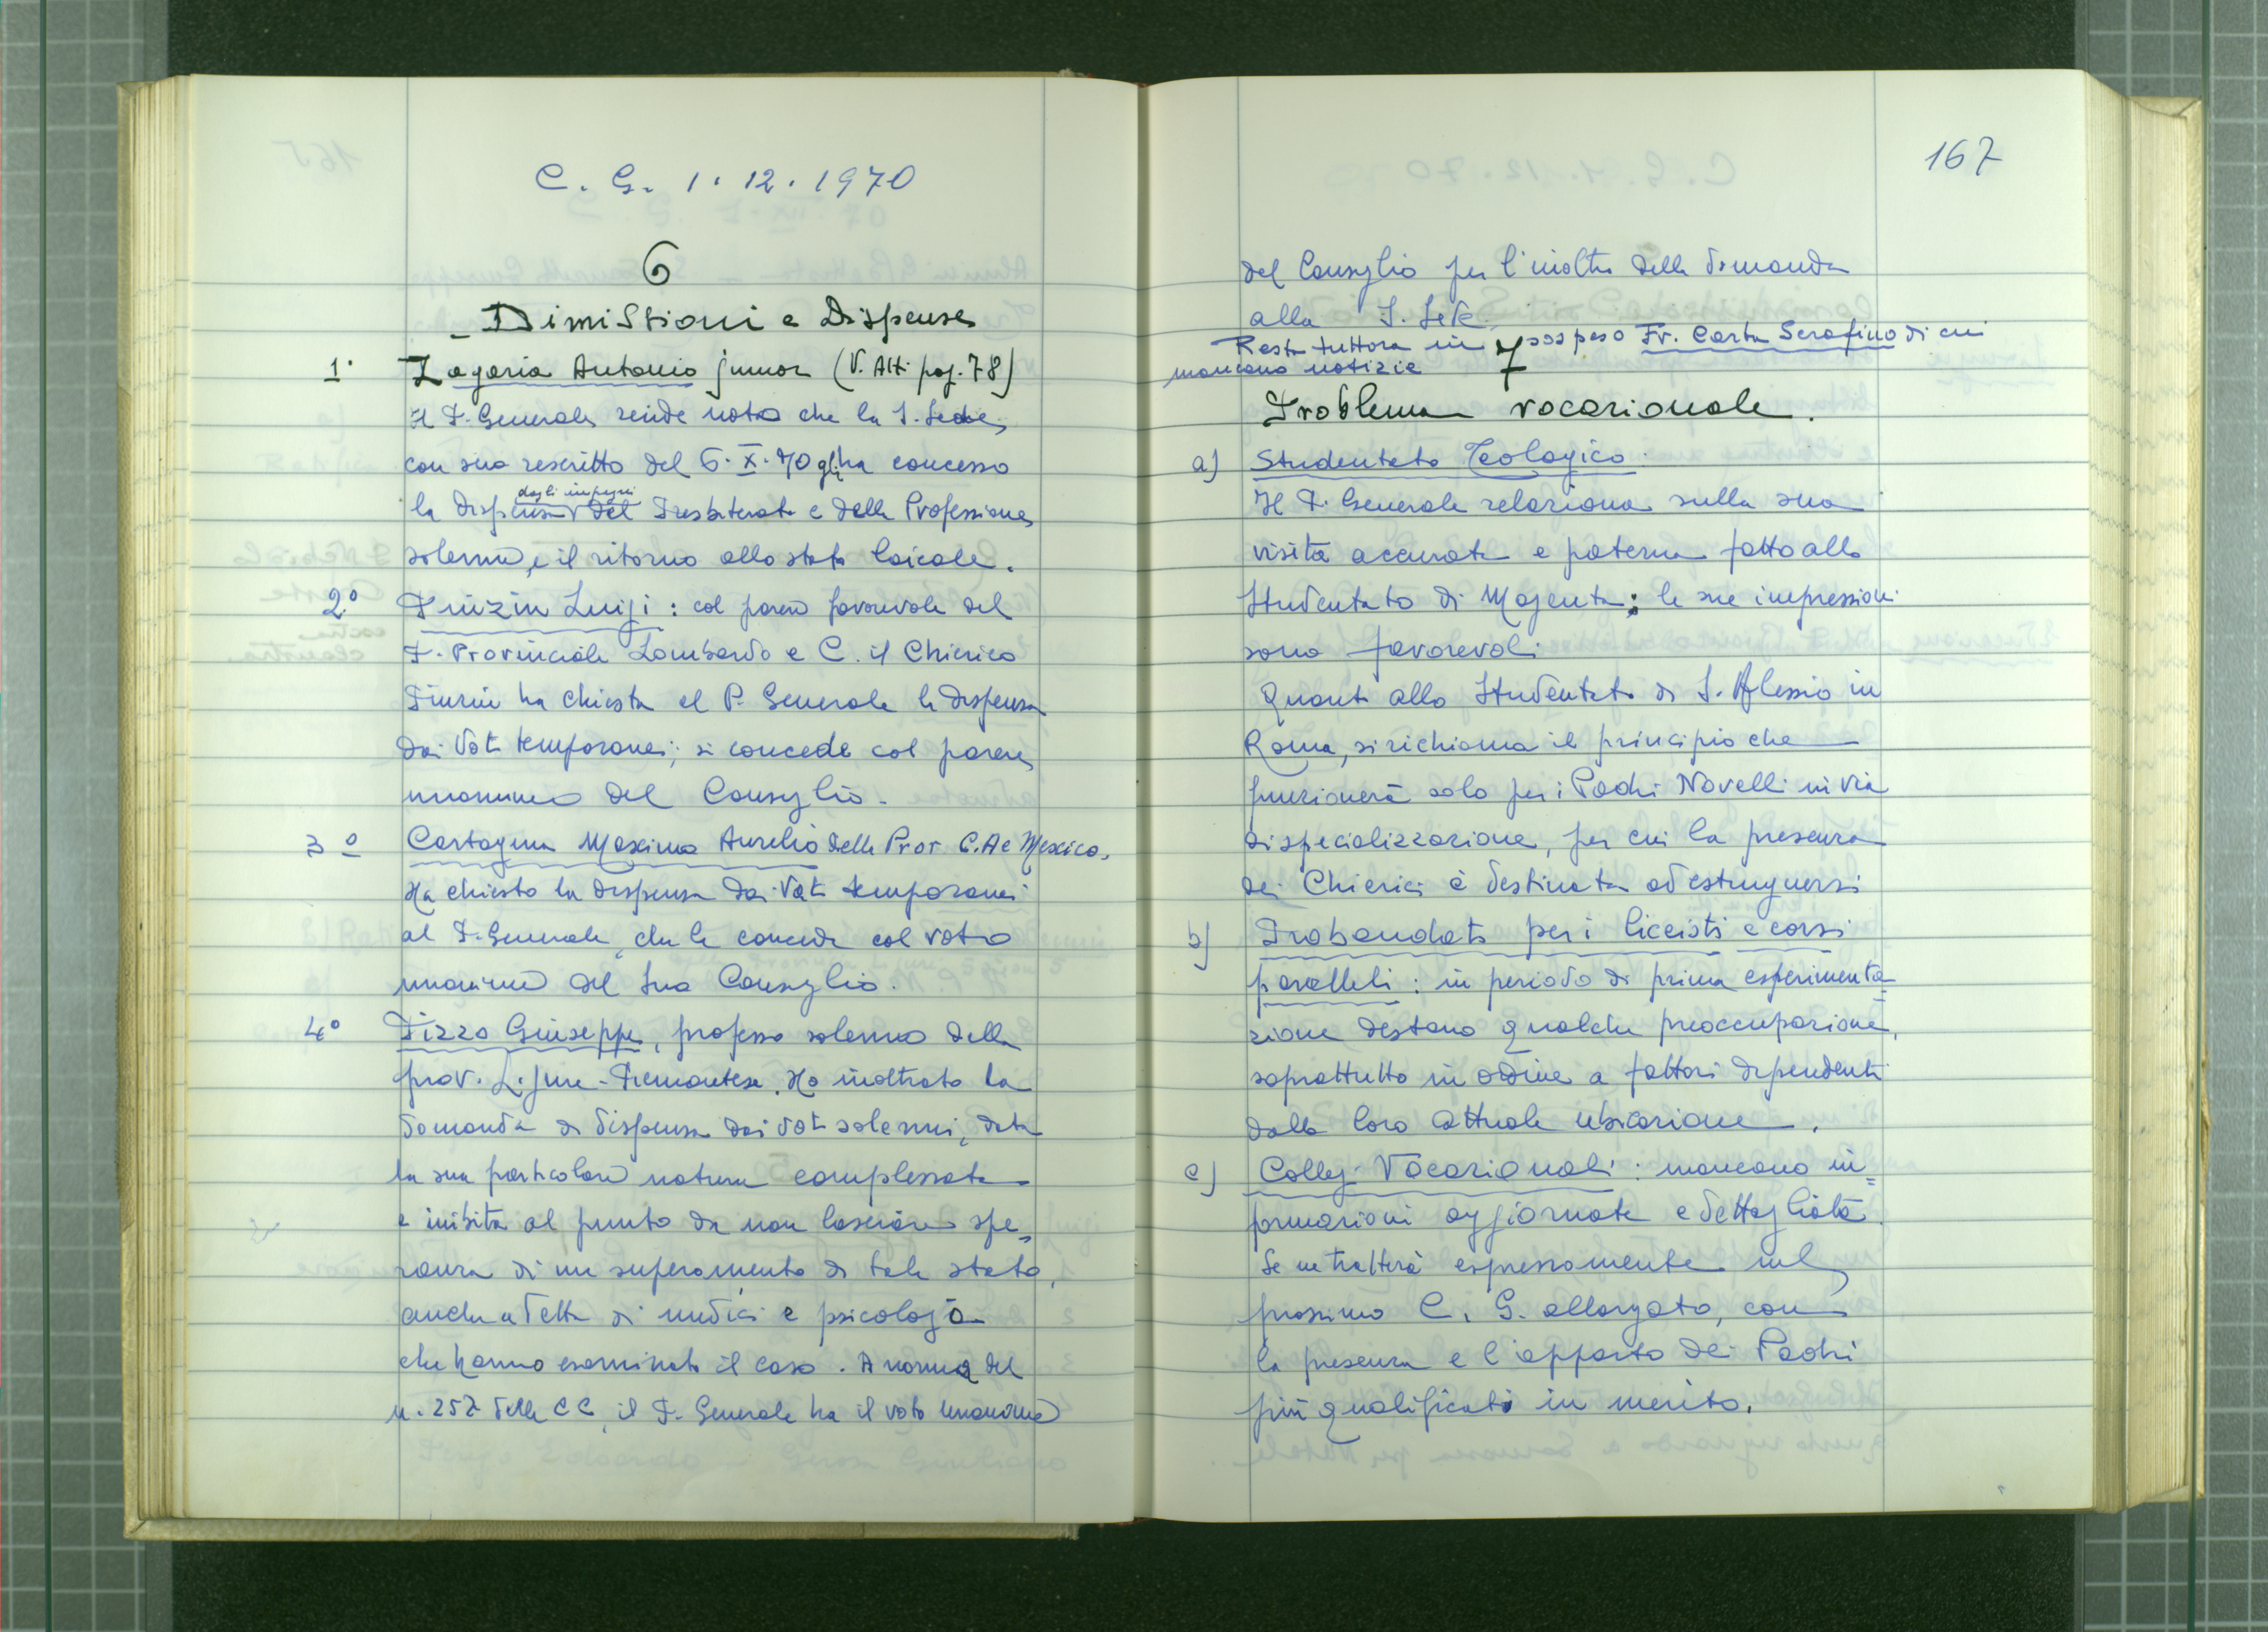 C. G. 1. 12. 1970
6
Dimissioni e Dispense
1° Zagaria Antonio junior (V. Atti pag. 78)
Il P. Generale rende noto che la S. Sede,
con suo rescritto del 6. X. 70 gli ha concesso
la dispensa dagli impegni del Presbiterato e della Professione
solenne, e il ritorno allo stato laicale.
2° Luigi: col parere favorevole del
P. Provinciale Lombardo e C. il Chierico
ha chiesto al P. Generale la dispensa
dai Voti temporanei; si concede col parere
unanime del Consiglio.
3° Cartagena Maximo Aurelio della Prov. C.A e Mexico.
Ha chiesto la dispensa dai Voti temporanei
al P. Generale, che la concede col voto
unanime del suo Consiglio.
4° Pizzo Giuseppe, professo solenne della
prov. Ligure-Piemontese. Ha inoltrato la
domanda di dispensa dai voti solenni, data
la sua particolare natura complessata
e inibita al punto da non lasciare spe=
ranza di un superamento di tale stato,
anche a detta di medici e psicologo
che hanno esaminato il caso. A norma del
n. 257 delle CC, il P. Generale ha il voto unanime
167
del Consiglio per l'inoltro della domanda
alla S. Sede.
Resta tuttora in sospeso Fr. Carta Serafino di cui
mancano notizie
7
Problema vocazionale.
a) Studentato Teologico.
Il P. Generale relaziona sulla sua
visita accurata e paterna fatta allo
Studentato di Magenta; le sue impressioni
sono favorevoli.
Quanto allo Studentato di S. Alessio in
Roma, si richiama il principio che
funzionerà solo per i Padri Novelli in via
di specializzazione, per cui la presenza
dei Chierici è destinata ad estinguersi
b) Probandati per i liceisti e corsi
paralleli: in periodo di prima esperimenta=
zione destano qualche preoccupazione,
soprattutto in ordine a fattori dipendenti
dalla loro attuale ubicazione.
c) Collegi Vocazionali: mancano in=
formazioni aggiornate e dettagliate.
Se ne tratterà espressamente nel
prossimo C. G. allargato, con
la presenza e l'apporto dei Padri
più qualificati in merito.